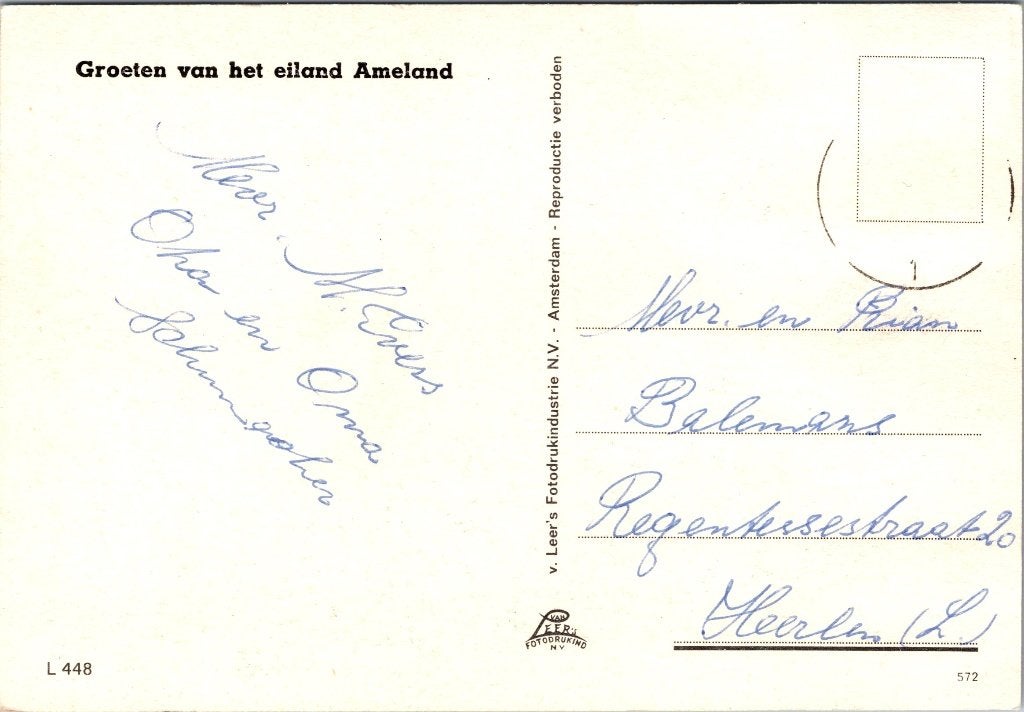 Groeten van het eiland Ameland
Mevr. M. Evers
Opa en Oma
Schumacher
v. Leer's Fotodrukindustrie N.V. - Amsterdam - Reproductie verboden
1
Mevr. en Rian
Balemans
Regentessestraat 20
Heerlen (L.)
VAN
LEER's
FOTODRUKIND
N V
L 448
572